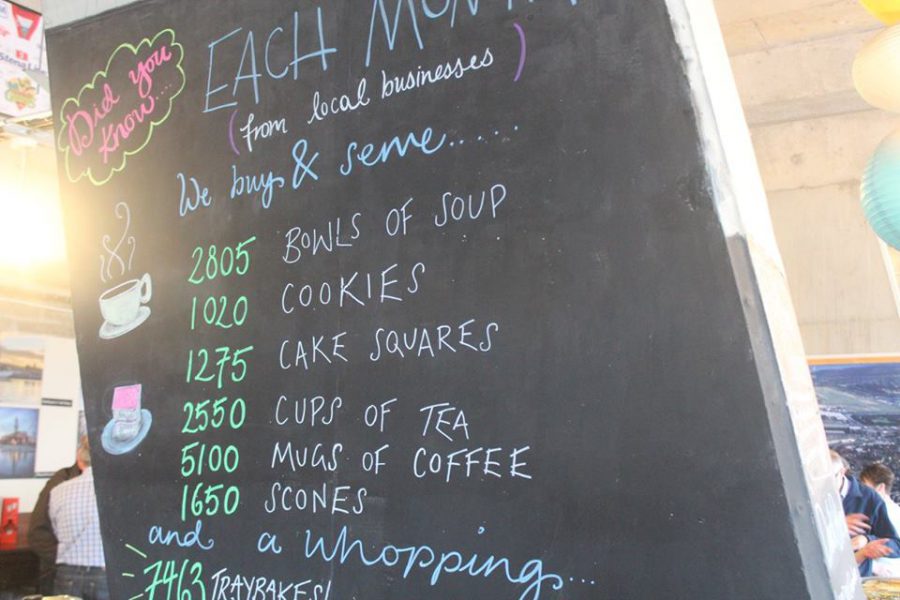 Did you
know....
EACH MONTH
(from local businesses)
We buy & serve.....
2805 BOWLS OF SOUP
1020 COOKIES
1275 CAKE SQUARES
2550 CUPS OF TEA
5100 MUGS OF COFFEE
1650 SCONES
and a whopping...
7463 TRAYBAKES!